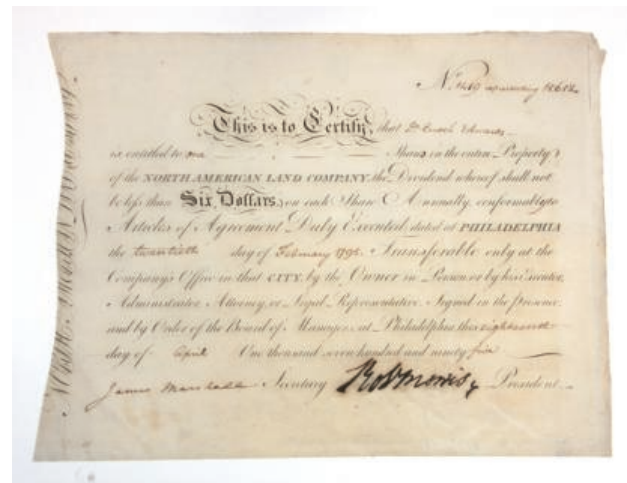 This is to Certify, that Dr. Enoch Edwards
is entitled to one Share in the entire Property
of the NORTH AMERICAN LAND COMPANY, the Dividend whereof shall not
be less than Six Dollars, on each Share Annually, conformably to
Articles of Agreement Duly Executed, dated at PHILADELPHIA
the twentieth day of February 1795. Transferable only at the
Company's Office in that CITY, by the Owner in Person, or by his Executor,
Administrator, Attorney, or Legal Representative. Signed in the presence
and by Order of the Board of Managers, at Philadelphia this eighteenth
day of April One thousand seven hundred and ninety five
James Marshall Secretary Rob Morris President